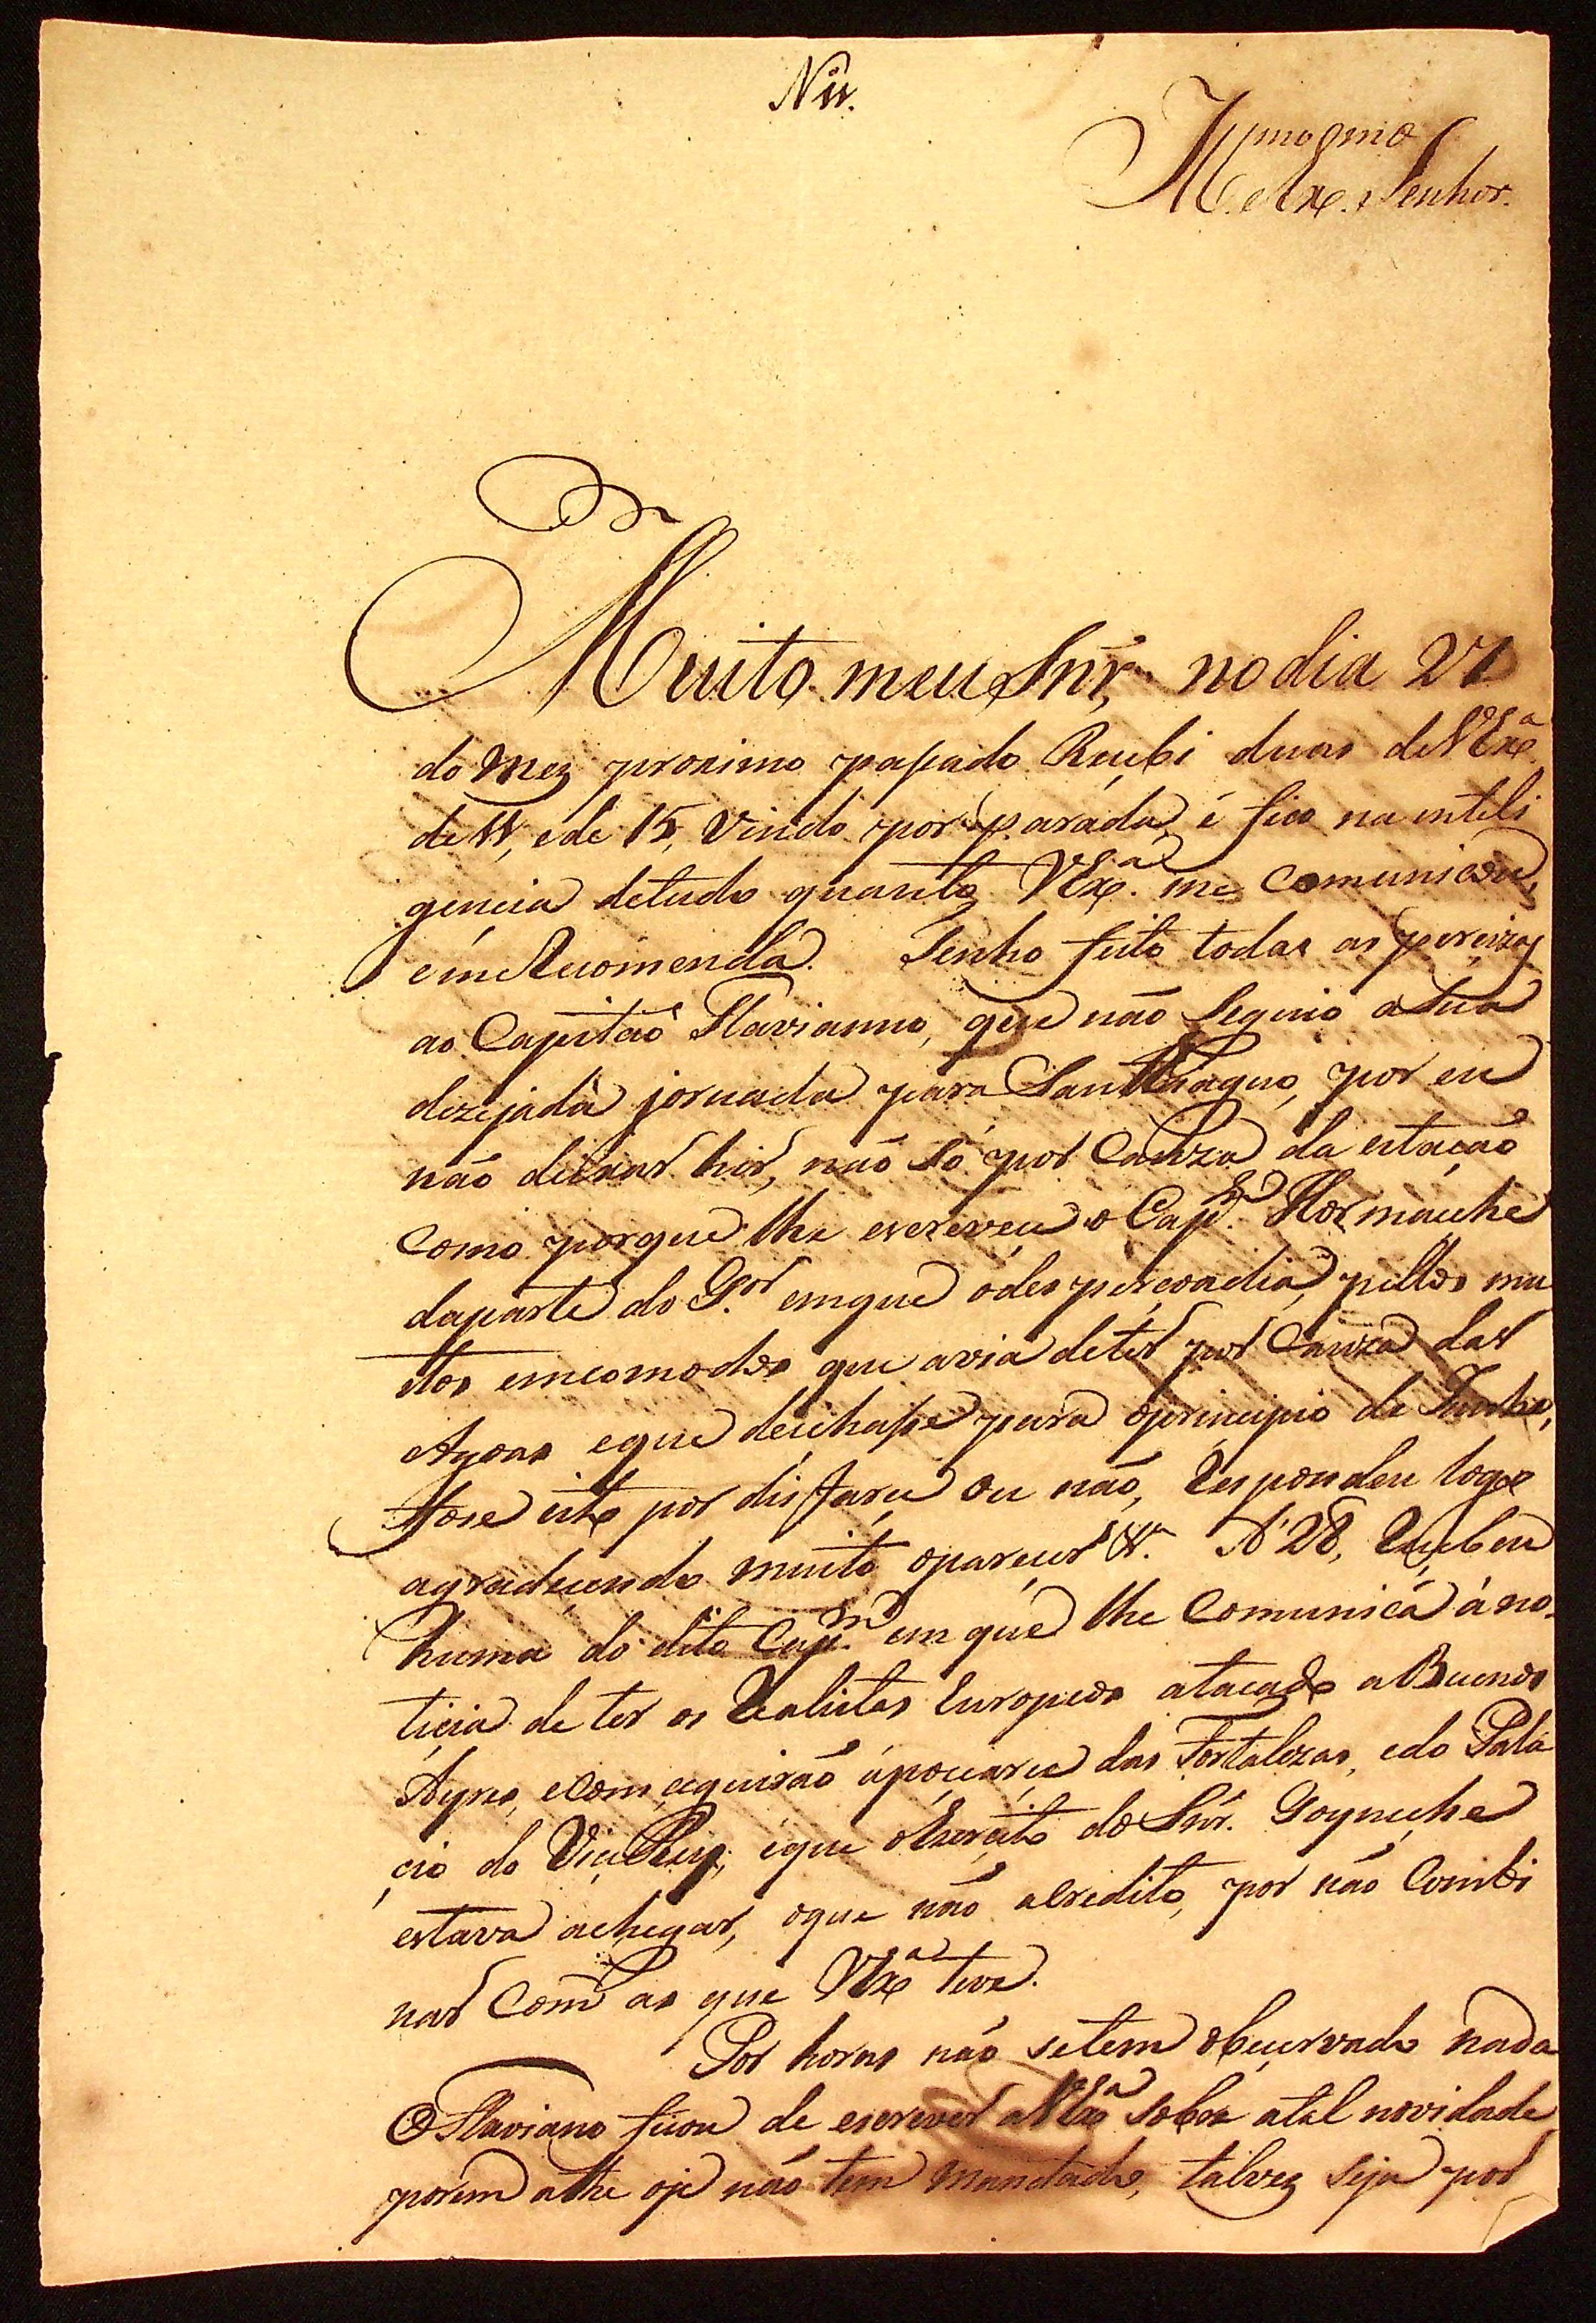 Ill.mo e Ex.mo Senhor.
Muito meu Snr., no dia 21
do mez proximo paſsado Recebi duas de VEx.ª
de 11, e de 15, vindo por parada, é fico na inteli
gencia de tudo quanto VEx.ª me comunicou,
e me Recomenda. Tenho feito todas as
ao Capitaõ Flavianno, que não seguio a sua
dezejada jornada para Santhiaguo, por eu
não deixar hir, não só por Cauza da estação
como porque lhe escreveu o Cap.m Hormache
da parte do G.or em que o des percoadia, pellos mu
itos emcomodos que avia de ter por Cauza das
Agoas e que deichaſse para o principio de Junho,
Fose isto por disfarce ou não, Respondeu logo
agradecendo muito o parecer &.ª A 28, Recebeu
huma do dito Cap.m em que lhe comunica á no-
ticia de ter os Realistas Europeos atacado a Buenos
Ayres, e comceguirão apoçarce das Fortalezas, e do Pala
cio do Vice Rey, e que o Exercito do Snr. Goyneche
estava achegar, o que não acredito, por não Combi
nar Com as que VEx.ª teve.
Por horas não se tem obcervado nada
O Flaviano ficou de escrever a VEx.ª sobre a tal novidade
porem athe oje não tem mandado, talvez seja por